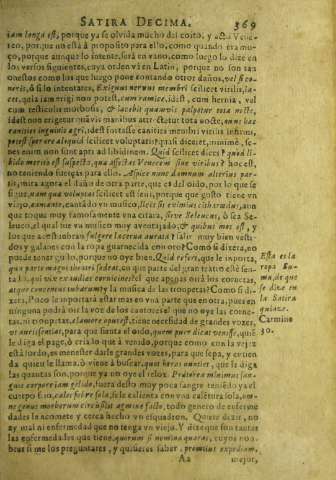 SATIRA DECIMA. 369
iam longa est, porque ya se olvida mucho del coito, y acto Vene-
reo, porque no está à proposito para ello, como quando era mu-
ço, porque aunque lo intente, será en vano, como luego lo dize en
los versos siguientes, cuya orden vá en Latin, porque no son tan
onestos como los que luego pone contando otros daños, vel si co-
neris, ò si lo intentares, Exiguus nervus membri scilicet virilis, ia-
cet, quia iam erigi non potest, cum ramice, idest, cum hernia, vel
cum testiculo morboso, & iacebit quamvis palpetur tota nocte,
idest non erigetur quàvis manibus
canities inguinis ægri, idest
potest sperare aliquid scilicet voluptatis
enim non sunt apti ad libidinem. Quid scilicet dices? quòd li-
bido meritò est suspecta, quæ affectat Venerem sine viribus? hoc est,
no teniendo fuerças para ello. Aspice nunc damnum alterius par-
tis, mira agora el daño de otra parte, que es del oido, por lo que se
sigue, nam quæ voluptas scilicet est seni, porque que gusto tiene vn
viejo, cantante, cantado vn musico, licet sit eximius citharœdus, aun
que toque muy famosamente vna citara, sieve Seleucus, ò sea Se-
leuco, el qual fue vn musico muy aventajado, & quibus mos est, y
los que acostumbran fulgere lacerna aurata? salir muy bien vesti-
dos y galanes con la ropa guarnecida con oro? Como si dixera, no
puede tener gusto, porque no oye bien. Quid refert, que le importa,
qua parte magni theatri sedeat, en que parte del gran teatro esté sen-
tado, qui vix exaudiet cornicines? el que apenas oirá los cornetas,
atque concentus tubarum? y la musica de las trompetas? Como si di-
xera, Poco le importará estar mas en vna parte que en otra, pues en
ninguna podrá oir la voz de los cantores el que no oye las corne-
tas, ni trompetas. Clamore opus est, tiene necesidad de grandes vozes,
vt auris sentiat, para que sienta el oido, quem puer dicat venisse, que
le diga el page, ò criado que à venido, porque como con la vejez
está sordo, es menester darle grandes vozes, para que sepa, y entien
da quien le llama, ò viene à buscar, quot horas nuntiet, que le diga
las quantas son, porque ya no oye el relox. Præterea minimus san-
guis corpore iam gelido, fuera desto muy poca sangre tenido ya el
cuerpo frio, calet febre sola, se le calienta con vna calentura sola, om-
ne genus morborum circumsilit agmine facto, todo genero de enferme
dades le acomete y cerca hecho vn esquadron. Quiere dezir, no
ay mal ni enfermedad que no tenga vn viejo. Y dize que son tantas
las enfermedades que tiene, quorum si nomina quæras, cuyos nom-
bres si me los preguntares, y quisieres saber, promptius expediam,
Aa mejor,
Esta es la
ropa Ru-
ma, de que
se dize en
la Satira
quinze.
Carmine
30.